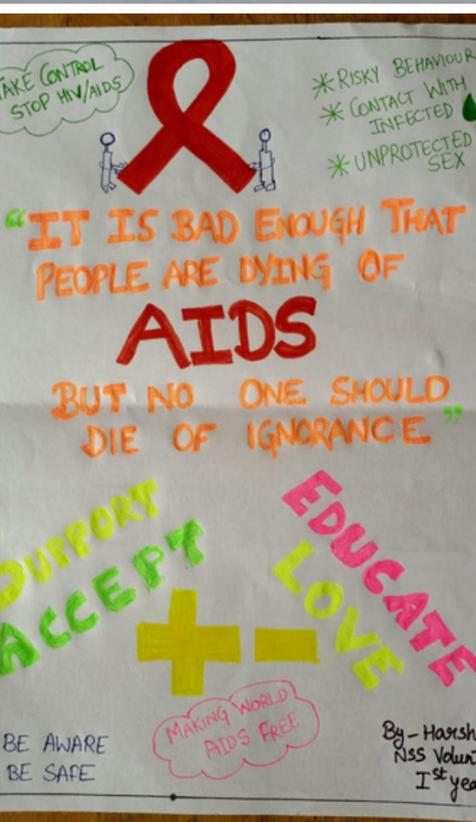 TAKE CONTROL
STOP HIV/AIDS
* RISKY BEHAVIOUR
* CONTACT WITH
INFECTED
* UNPROTECTED
SEX
"IT IS BAD ENOUGH THAT
PEOPLE ARE DYING OF
AIDS
BUT NO ONE SHOULD
DIE OF IGNORANCE"
SUPPORT
ACCEPT
EDUCATE
LOVE
+ -
MAKING WORLD
AIDS FREE
BE AWARE
BE SAFE
By - Harsh
NSS Volun
Ist yea